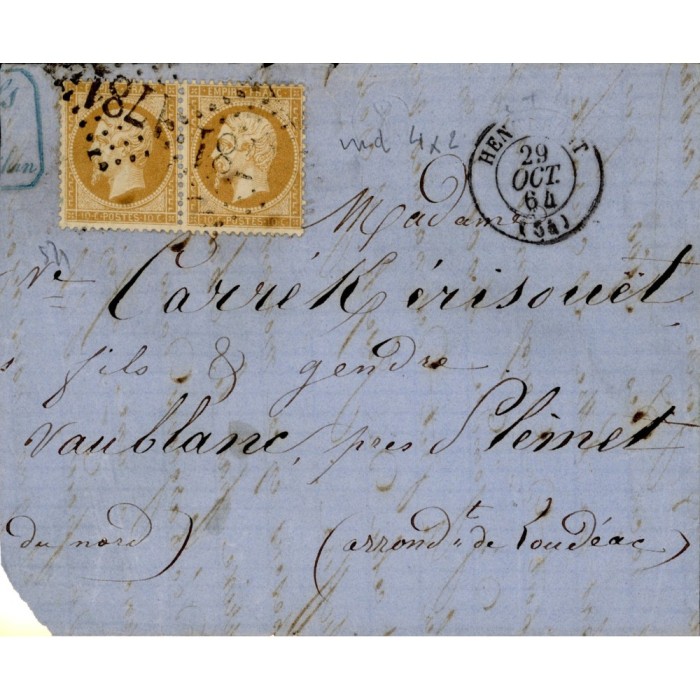 EMPIRE FRANC. EMPIRE FRANC.
1781
10 C POSTES 10 C 10 C POSTES 10 C
md 4x2
29
OCT.
64
(54)
Madame
Ve Carré Kérisouët
fils & gendre
Vaublanc, près Plémet
du nord) (arrondt de Loudéac)